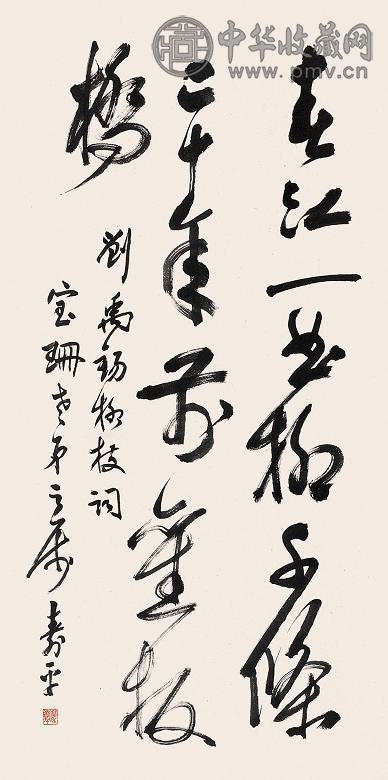 中华收藏网
www.pmv.cn
春江一曲柳千條
二十年前舊板
橋
劉禹錫柳枝詞
宝珊老弟之属 寿平